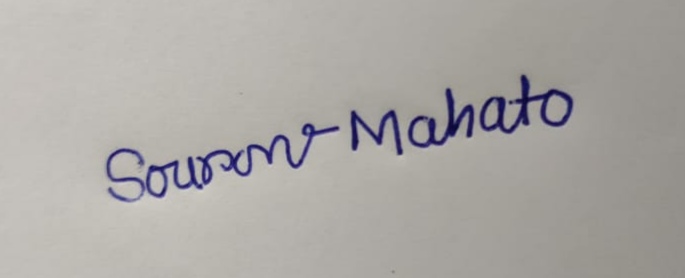 Sourav Mahato